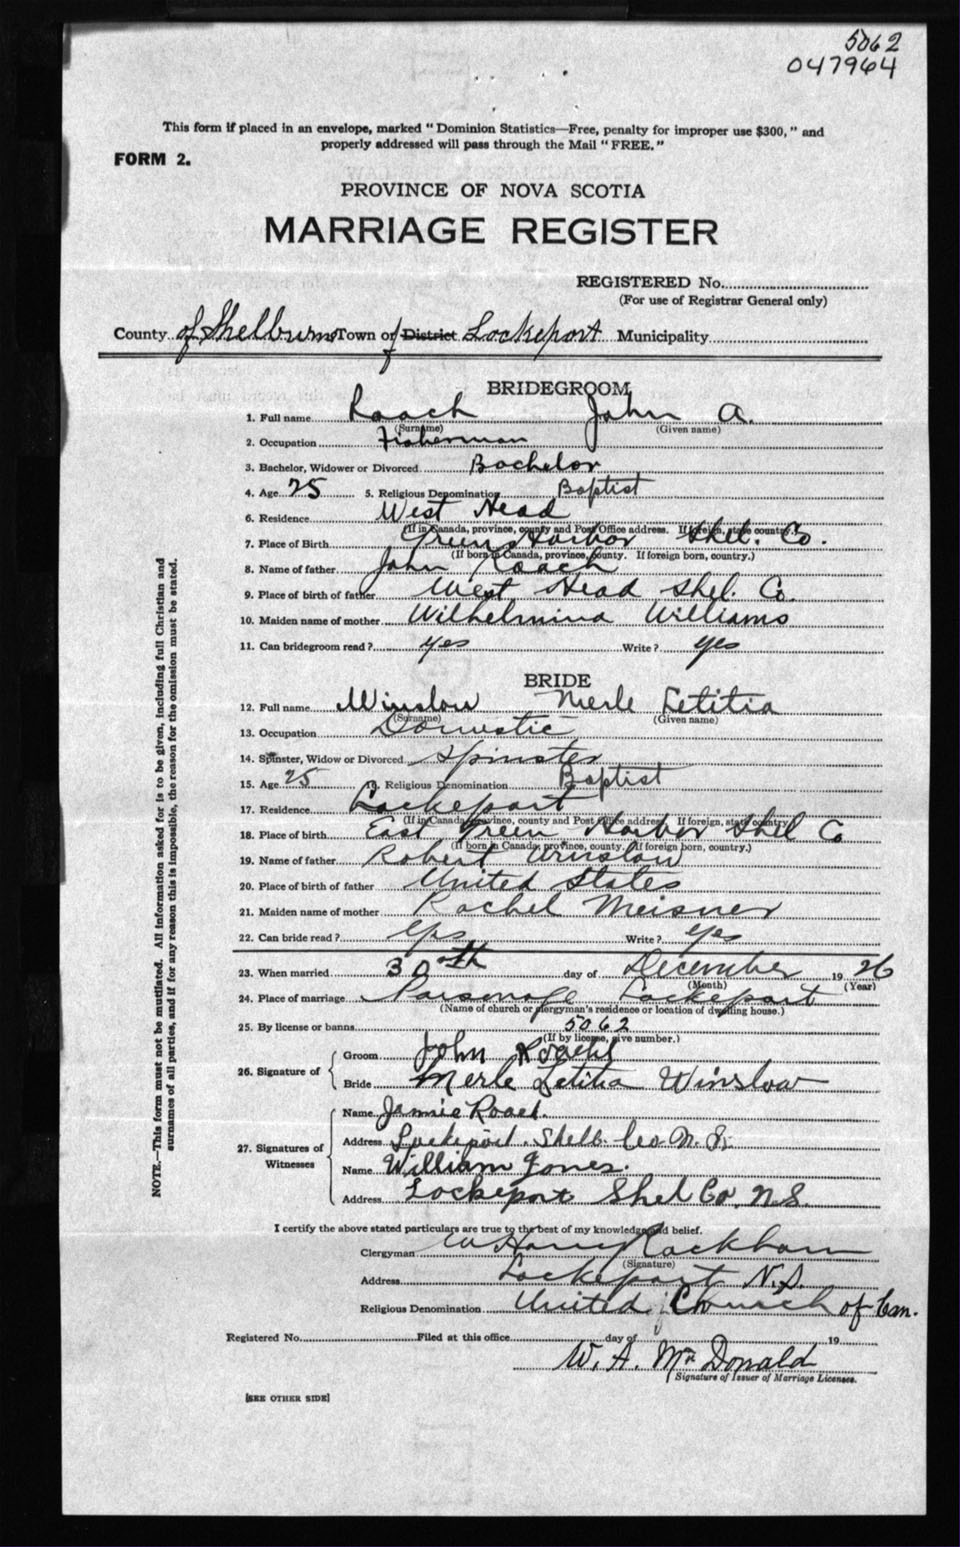 5062
047964
This form if placed in an envelope, marked "Dominion Statistics—Free, penalty for improper use $300," and
properly addressed will pass through the Mail "FREE."
FORM 2.
PROVINCE OF NOVA SCOTIA
MARRIAGE REGISTER
REGISTERED No.
(For use of Registrar General only)
County of Shelburne Town of District Lockeport Municipality
BRIDEGROOM
1. Full name Roach John A.
(Surname) (Given name)
2. Occupation Fisherman
3. Bachelor, Widower or Divorced Bachelor
4. Age 25 5. Religious Denomination Baptist
6. Residence West Head
(If in Canada, province, county and Post Office address. If foreign, state country.)
7. Place of Birth Green Harbor Shel. Co.
(If born in Canada, province, county. If foreign born, country.)
8. Name of father John Roach
9. Place of birth of father West Head Shel. Co.
10. Maiden name of mother Wilhelmina Williams
11. Can bridegroom read? yes Write? yes
BRIDE
12. Full name Winslow Merle Letitia
(Surname) (Given name)
13. Occupation Domestic
14. Spinster, Widow or Divorced Spinster
15. Age 25 16. Religious Denomination Baptist
17. Residence Lockeport
(If in Canada, province, county and Post Office address. If foreign, state country.)
18. Place of birth East Green Harbor Shel Co
(If born in Canada, province, county. If foreign born, country.)
19. Name of father Robert Winslow
20. Place of birth of father United States
21. Maiden name of mother Rachel Meisner
22. Can bride read? yes Write? yes
23. When married 30th day of December 1926
(Month) (Year)
24. Place of marriage Parsonage Lockeport
(Name of church or clergyman's residence or location of dwelling house.)
25. By license or banns 5062
(If by license, give number.)
26. Signature of
Groom John Roach
Bride Merle Letitia Winslow
27. Signatures of Witnesses
Name Jamie Roach.
Address Lockeport. Shelb. Co. N.S.
Name William Jones.
Address Lockeport Shel Co. N.S.
I certify the above stated particulars are true to the best of my knowledge and belief.
Clergyman Harry Rackham
(Signature)
Address Lockeport N.S.
Religious Denomination United Church of Can.
Registered No. Filed at this office day of 19
W. A. McDonald
Signature of Issuer of Marriage Licenses.
[SEE OTHER SIDE]
NOTE.—This form must not be mutilated. All information asked for is to be given, including full Christian and
surnames of all parties, and if for any reason this is impossible, the reason for the omission must be stated.